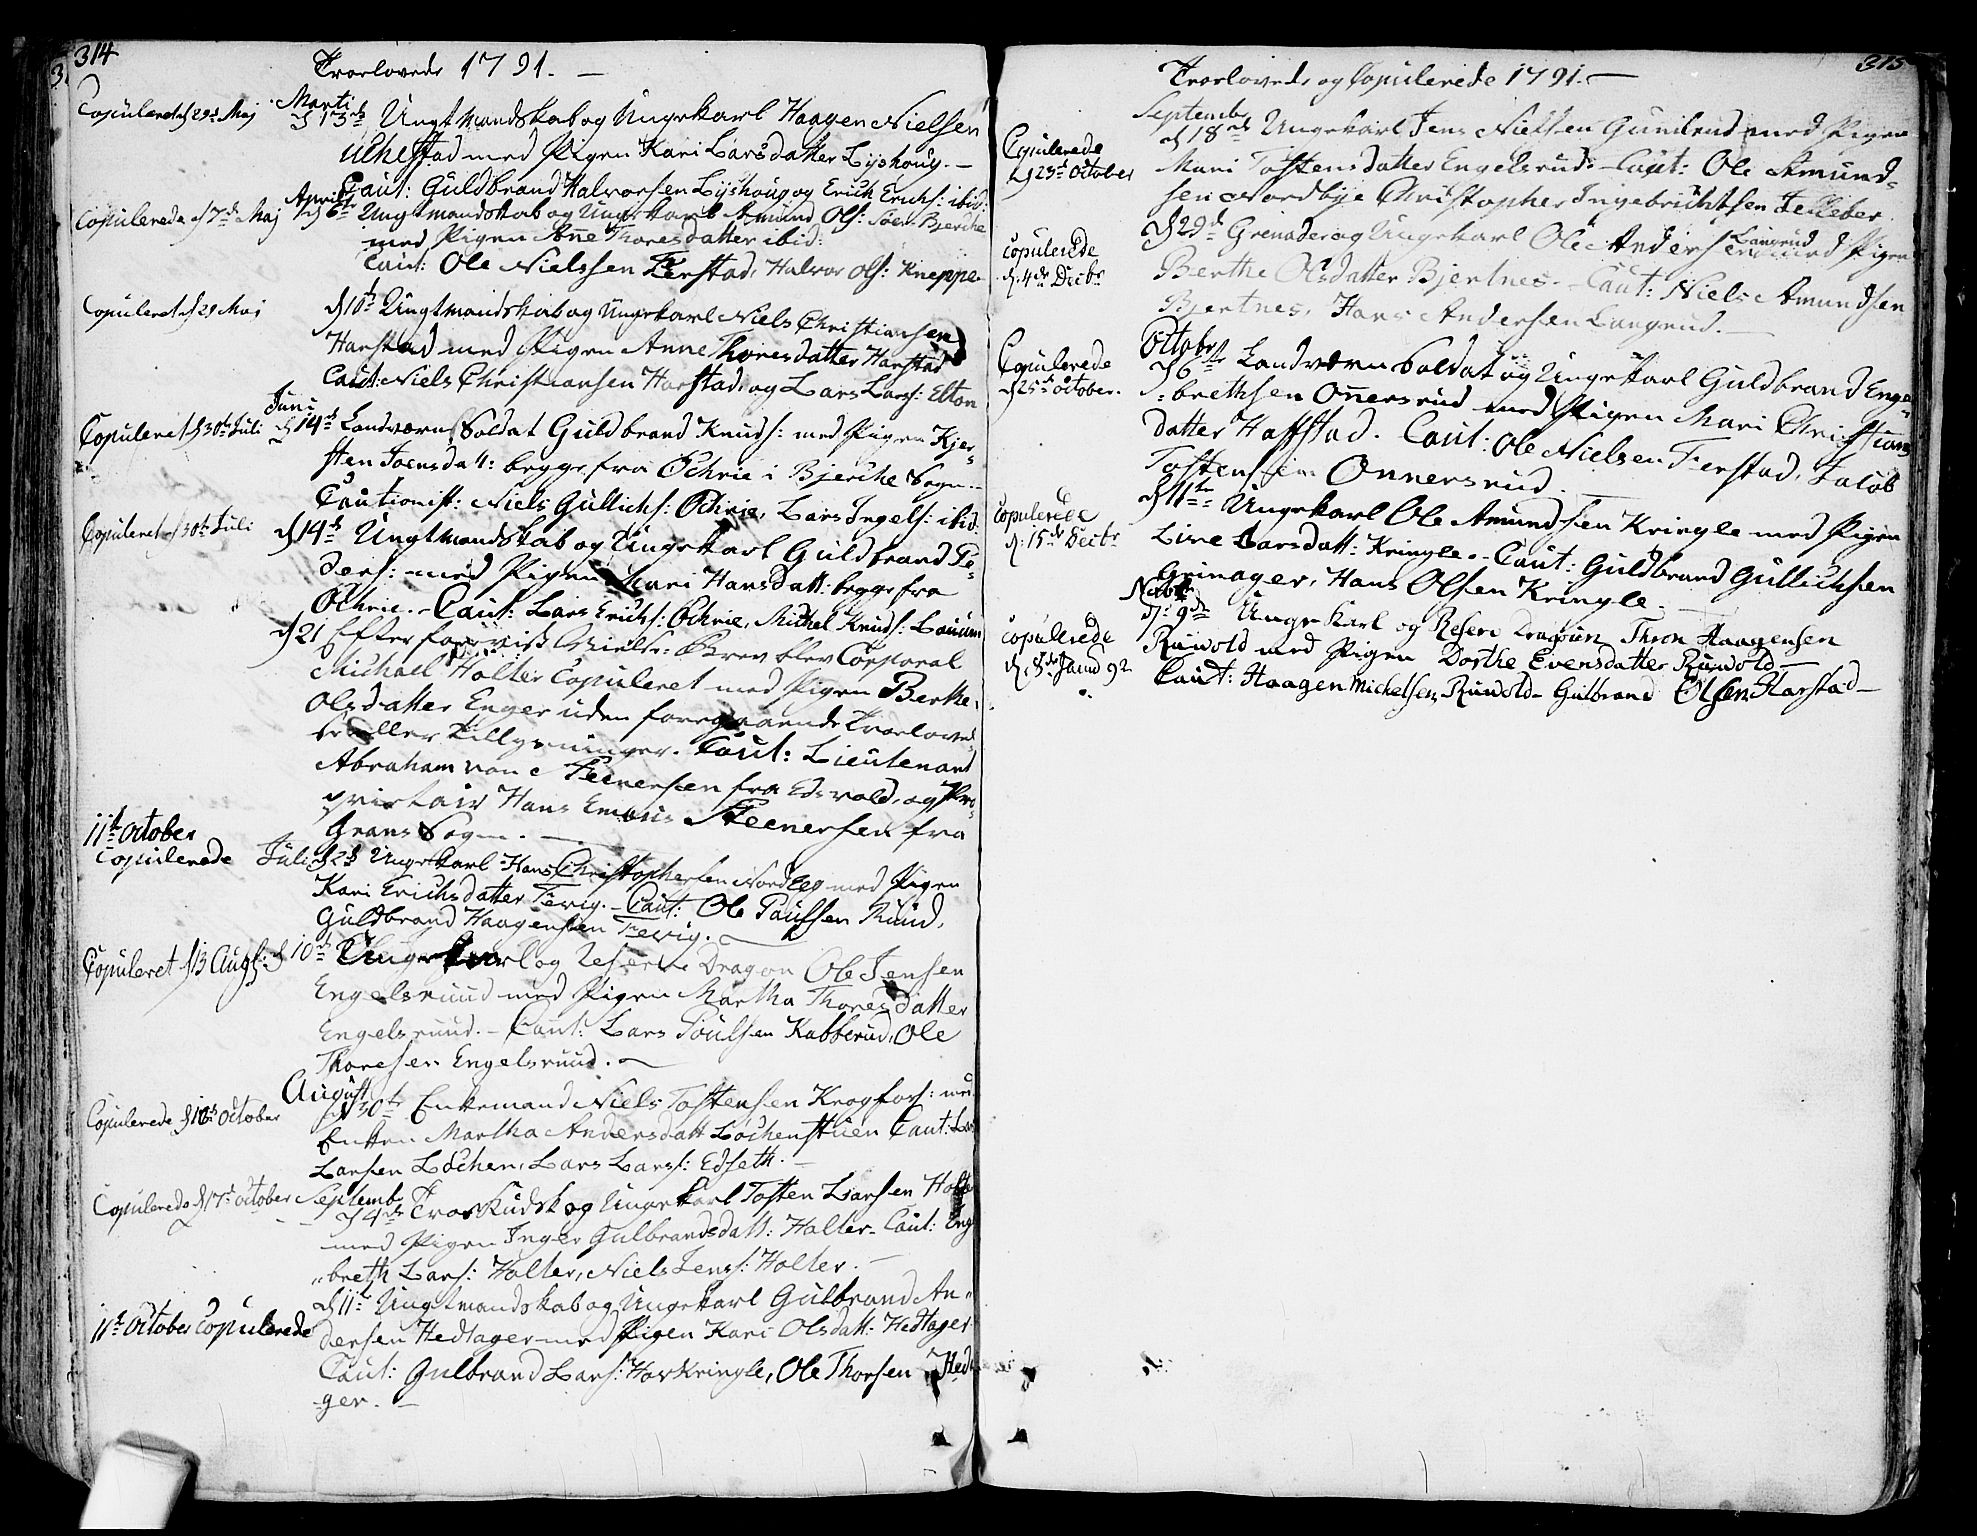 314
Troelovede 1791. —
Copuleret d 29d Maj
Marti
d 13de Ungt Mandskab og Ungekarl Haagen Nielsen
Uchestad med Pigen Kari Larsdatter Lyshoug. —
Caut: Guldbrand Halvorsen Lyshoug og Erich Erichs: ibid:
Copulerede d 7de Maj
April
d 6te Ungtmandskab og Ungekarl Amund Ols: Bjerche
med Pigen Anne Thoresdatter ibid:
Caut: Ole Nielssen Fierstad, Halvor Ols: Kneppe
Copuleret d 29 Maj
d 10d Ungtmandskab og Ungekarl Niels Christiansen
Harstad med Pigen Anne Thoresdatter Harstad
Caut: Niels Christiansen Harstad, og Lars Lars: Elton
Copuleret d 30te Juli
Juni
d 14de Landværn Soldat Guldbrand Knuds: med Pigen Kjer-
sten Joensdatt: begge fra Ochrie i Bjerche Sogn.-
Cautionist: Niels Gullichs: Ochrie, Lars Ingels: ibid.
Copuleret d 30te Juli
d 14de Ungtmandskab og Ungekarl Guldbrand Pe-
ders: med Pigen Kari Hansdatt: begge fra
Ochrie. - Caut: Lars Erichs: Ochrie, Michel Knuds:
d 21 Efter Brev blev Corporal
Michael Holter Copuleret med Pigen Berthe
Olsdatter Enger uden foregaaende Troelovel-
se eller tillysninger. Caut: Lieutenant
Abraham von Steenersen fra Edsvold, og Pro-
prietair Hans Steenersen fra
Grans Sogn. —
11te October
Copulerede
Juli d 2d Ungekarl Hans Christophersen Nordbye med Pigen
Kari Erichsdatter Tevig. - Caut: Ole Paulsen Ruud,
Guldbrand Haagensen Tevig. —
Copuleret d 13 Aug:
d 10de Ungekarl og Reserve Dragon Ole Jensen
Engelsruud med Pigen Martha Thoresdatter
Engelsruud. - Caut: Lars Poulsen Kabberud, Ole
Thoresen Engelsruud. —
Copulerede d 18de October
August
d 30te Enkemand Niels Tostensen Krogfos: med
Enken Martha Andersdatt Lochenstuen Caut: Lars
Larsen Lochen, Lars Lars: Edseth. —
Copulerede d 17d October
Septembr
d 4de Ungekarl Tosten Larsen Holter
med Pigen Inger Gulbrandsdatt: Holter - Caut: Eng
"breth Lars: Holter, Niels Jens: Holter. —
11te October Copulerede
d 11te Ungtmandskab og Ungekarl Gulbrand An-
dersen Hedlager med Pigen Kari Olsdatt: Hedlager
Caut: Gulbrand Lars: Harkringle, Ole Thorsen Hedla
ger. —
315
Troelovede og Copulerede 1791. —
Copulerede
d 29d October
Septembr
d 18de Ungekarl Jens Nielsen Gunlrud med Pigen
Mari Tostensdatter Engelsrud: - Caut: Ole Amund-
sen Nordbye Christopher Ingebrichtsen
Copulerede
d. 4de Decbr
d 29d Grenader og Ungekarl Ole Andersen Langrud med Pigen
Berthe Olsdatter Bjertnes. - Caut: Niels Amundsen
Bjertnes, Hans Andersen Langrud. —
Copulerede
d 25de October.
Octobr
d 6te Landværn Soldat og Ungekarl Guldbrand Enge-
brethsen Onnersrud med Pigen Mari Christians
datter Haffstad. Caut: Ole Nielsen Fierstad, Jacob
Tostensen Onnersrud.
Copulerede
d. 15de Decbr
d 11te Ungekarl Ole Amundsen Kringle med Pigen
Live Larsdatt: Kringle. - Caut: Guldbrand Gullichsen
Grinager, Hans Olsen Kringle. —
Copulerede
d. 8de Janu 92
Novbr
d. 9de Ungekarl og Reserv Dragoun Thron Haagensen
Ruwold med Pigen Dorthe Evensdatter Ruwold —
Caut: Haagen Michelsen Ruwold - Gulbrand Olsen Harstad —